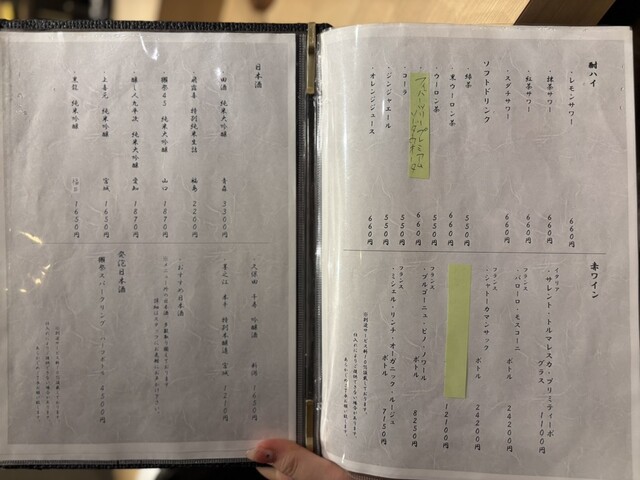 酎ハイ
・レモンサワー 660円
・抹茶サワー 660円
・紅茶サワー 660円
・スダチサワー 660円
ソフトドリンク
・緑茶 550円
・黒ウーロン茶 660円
・ウーロン茶 550円
フィーバーツリープレミアム
ソーダウォーター 660円
・コーラ 550円
・ジンジャエール 550円
・オレンジジュース 660円
赤ワイン
イタリア
・サレント・トルマレスカ・プリミティーボ
グラス 1100円
フランス
・バローロ・モスコーニ
ボトル 24200円
フランス
・シャトーカマンサック
ボトル 24200円
12100円
フランス
・ブルゴーニュ・ピノ・ノワール
ボトル 8250円
フランス
・ミシェル・リンチ・オーガニック・ルージュ
ボトル 7150円
日本酒
・田酒 純米大吟醸 青森 3300円
・飛露喜 特別純米生詰 福島 2200円
・獺祭45 純米大吟醸 山口 1870円
・醸し人九平次 純米大吟醸 愛知 1870円
・上喜元 純米吟醸 宮城 1650円
・黒龍 純米吟醸 福井 1650円
・久保田 千寿 吟醸酒 新潟 1430円
・おすすめ日本酒
発泡日本酒
・獺祭スパークリング ハーフボトル 4300円